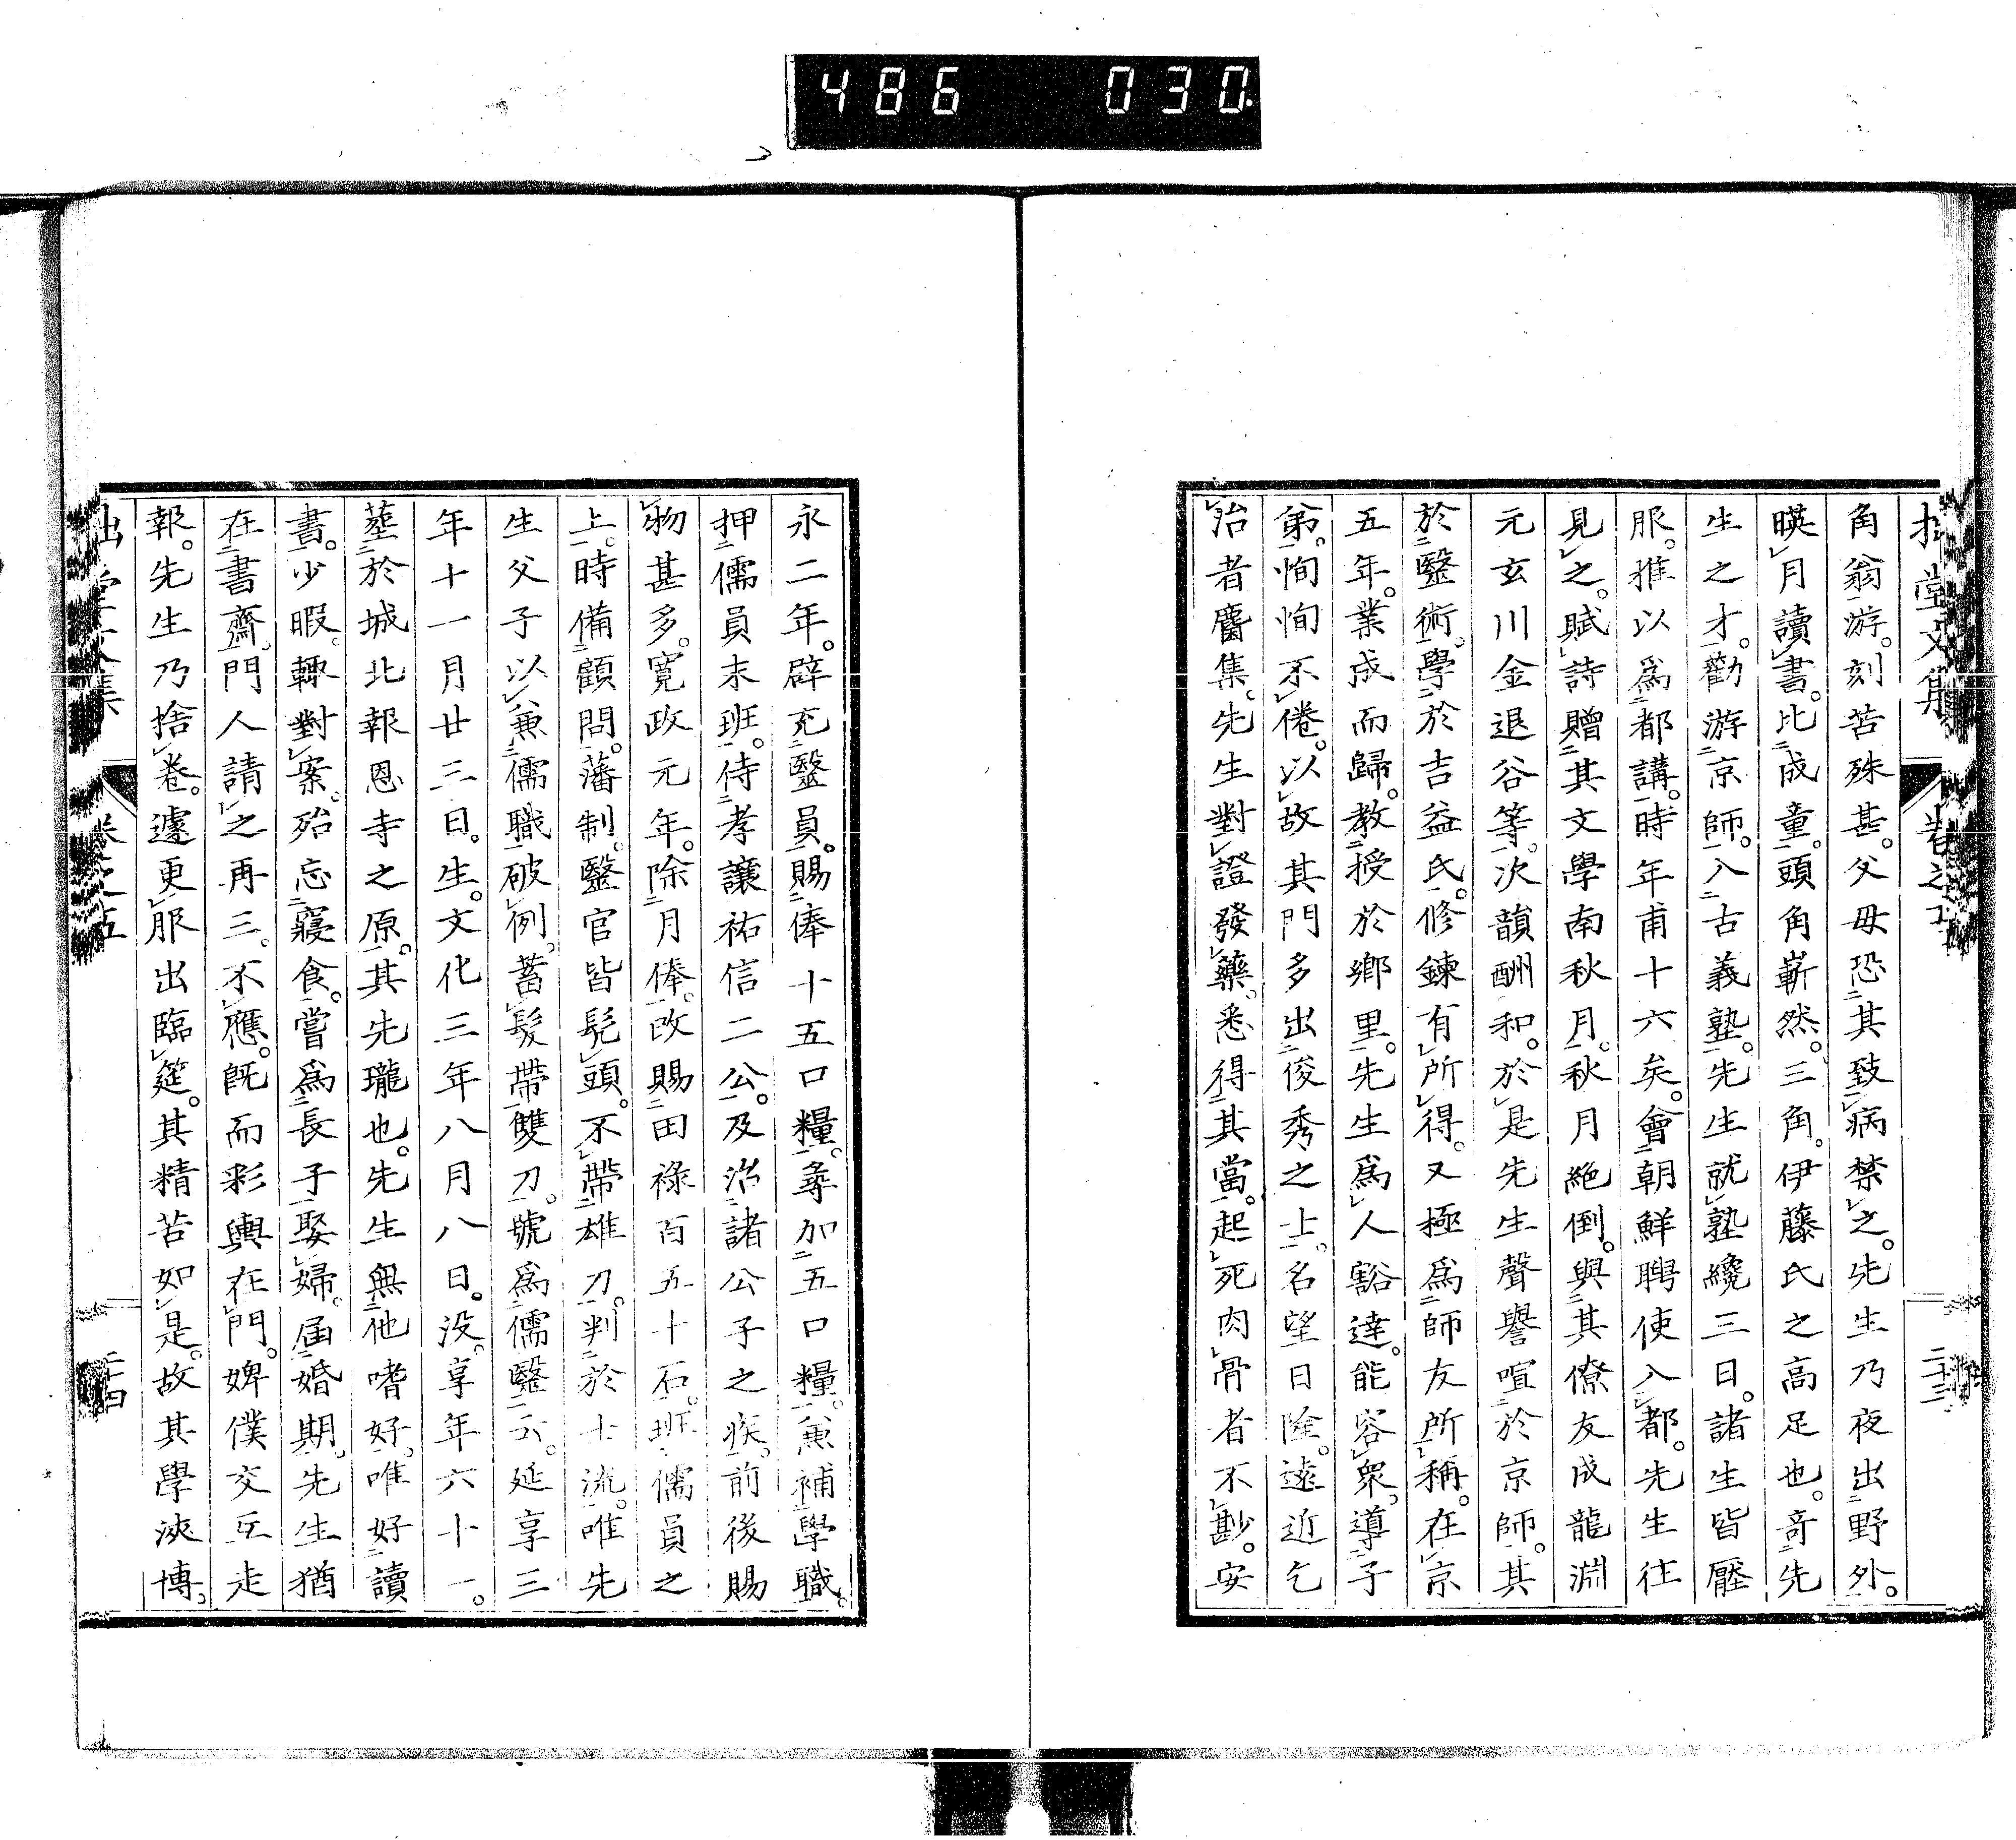 486 030
角翁游。刻苦殊甚。父母恐其致病禁之。先生乃夜出野外。
暎月讀書。比成童。頭角嶄然。三角。伊藤氏之高足也。奇先
生之才。勸游京師。入古義塾。先生就塾纔三日。諸生皆壓
服。推以爲都講。時年甫十六矣。會朝鮮聘使入都。先生往
見之。賦詩贈其文學南秋月。秋月絶倒。與其僚友成龍淵
元玄川金退谷等。次韻酬和。於是先生聲譽喧於京師。其
於毉術。學於吉益氏。修鍊有所得。又極爲師友所稱。在京
五年。業成而歸。教授於鄉里。先生爲人豁達。能容衆。導子
弟。恂恂不倦。以故其門多出俊秀之士。名望日隆。遠近乞
治者麕集。先生對證發藥。悉得其當。起死肉骨者不尠。安
永二年。辟充毉員。賜俸十五口糧。尋加五口糧。兼補學職。
押儒員末班。侍孝讓祐信二公。及治諸公子之疾。前後賜
物甚多。寛政元年。除月俸。改賜田祿百五十石。班儒員之
上。時備顧問。藩制。毉官皆髡頭。不帶雄刀。判於士流。唯先
生父子以兼儒職破例。蓄髮帶雙刀。號爲儒毉云。延享三
年十一月廿三日。生。文化三年八月八日。没。享年六十一。
葬於城北報恩寺之原。其先瓏也。先生無他嗜好。唯好讀
書。少暇。輙對案。殆忘寢食。嘗爲長子娶婦。屆婚期。先生猶
在書齋。門人請之再三。不應。既而彩輿在門。婢僕交互走
報。先生乃捨卷。遽更服出臨筵。其精苦如是。故其學浹博。